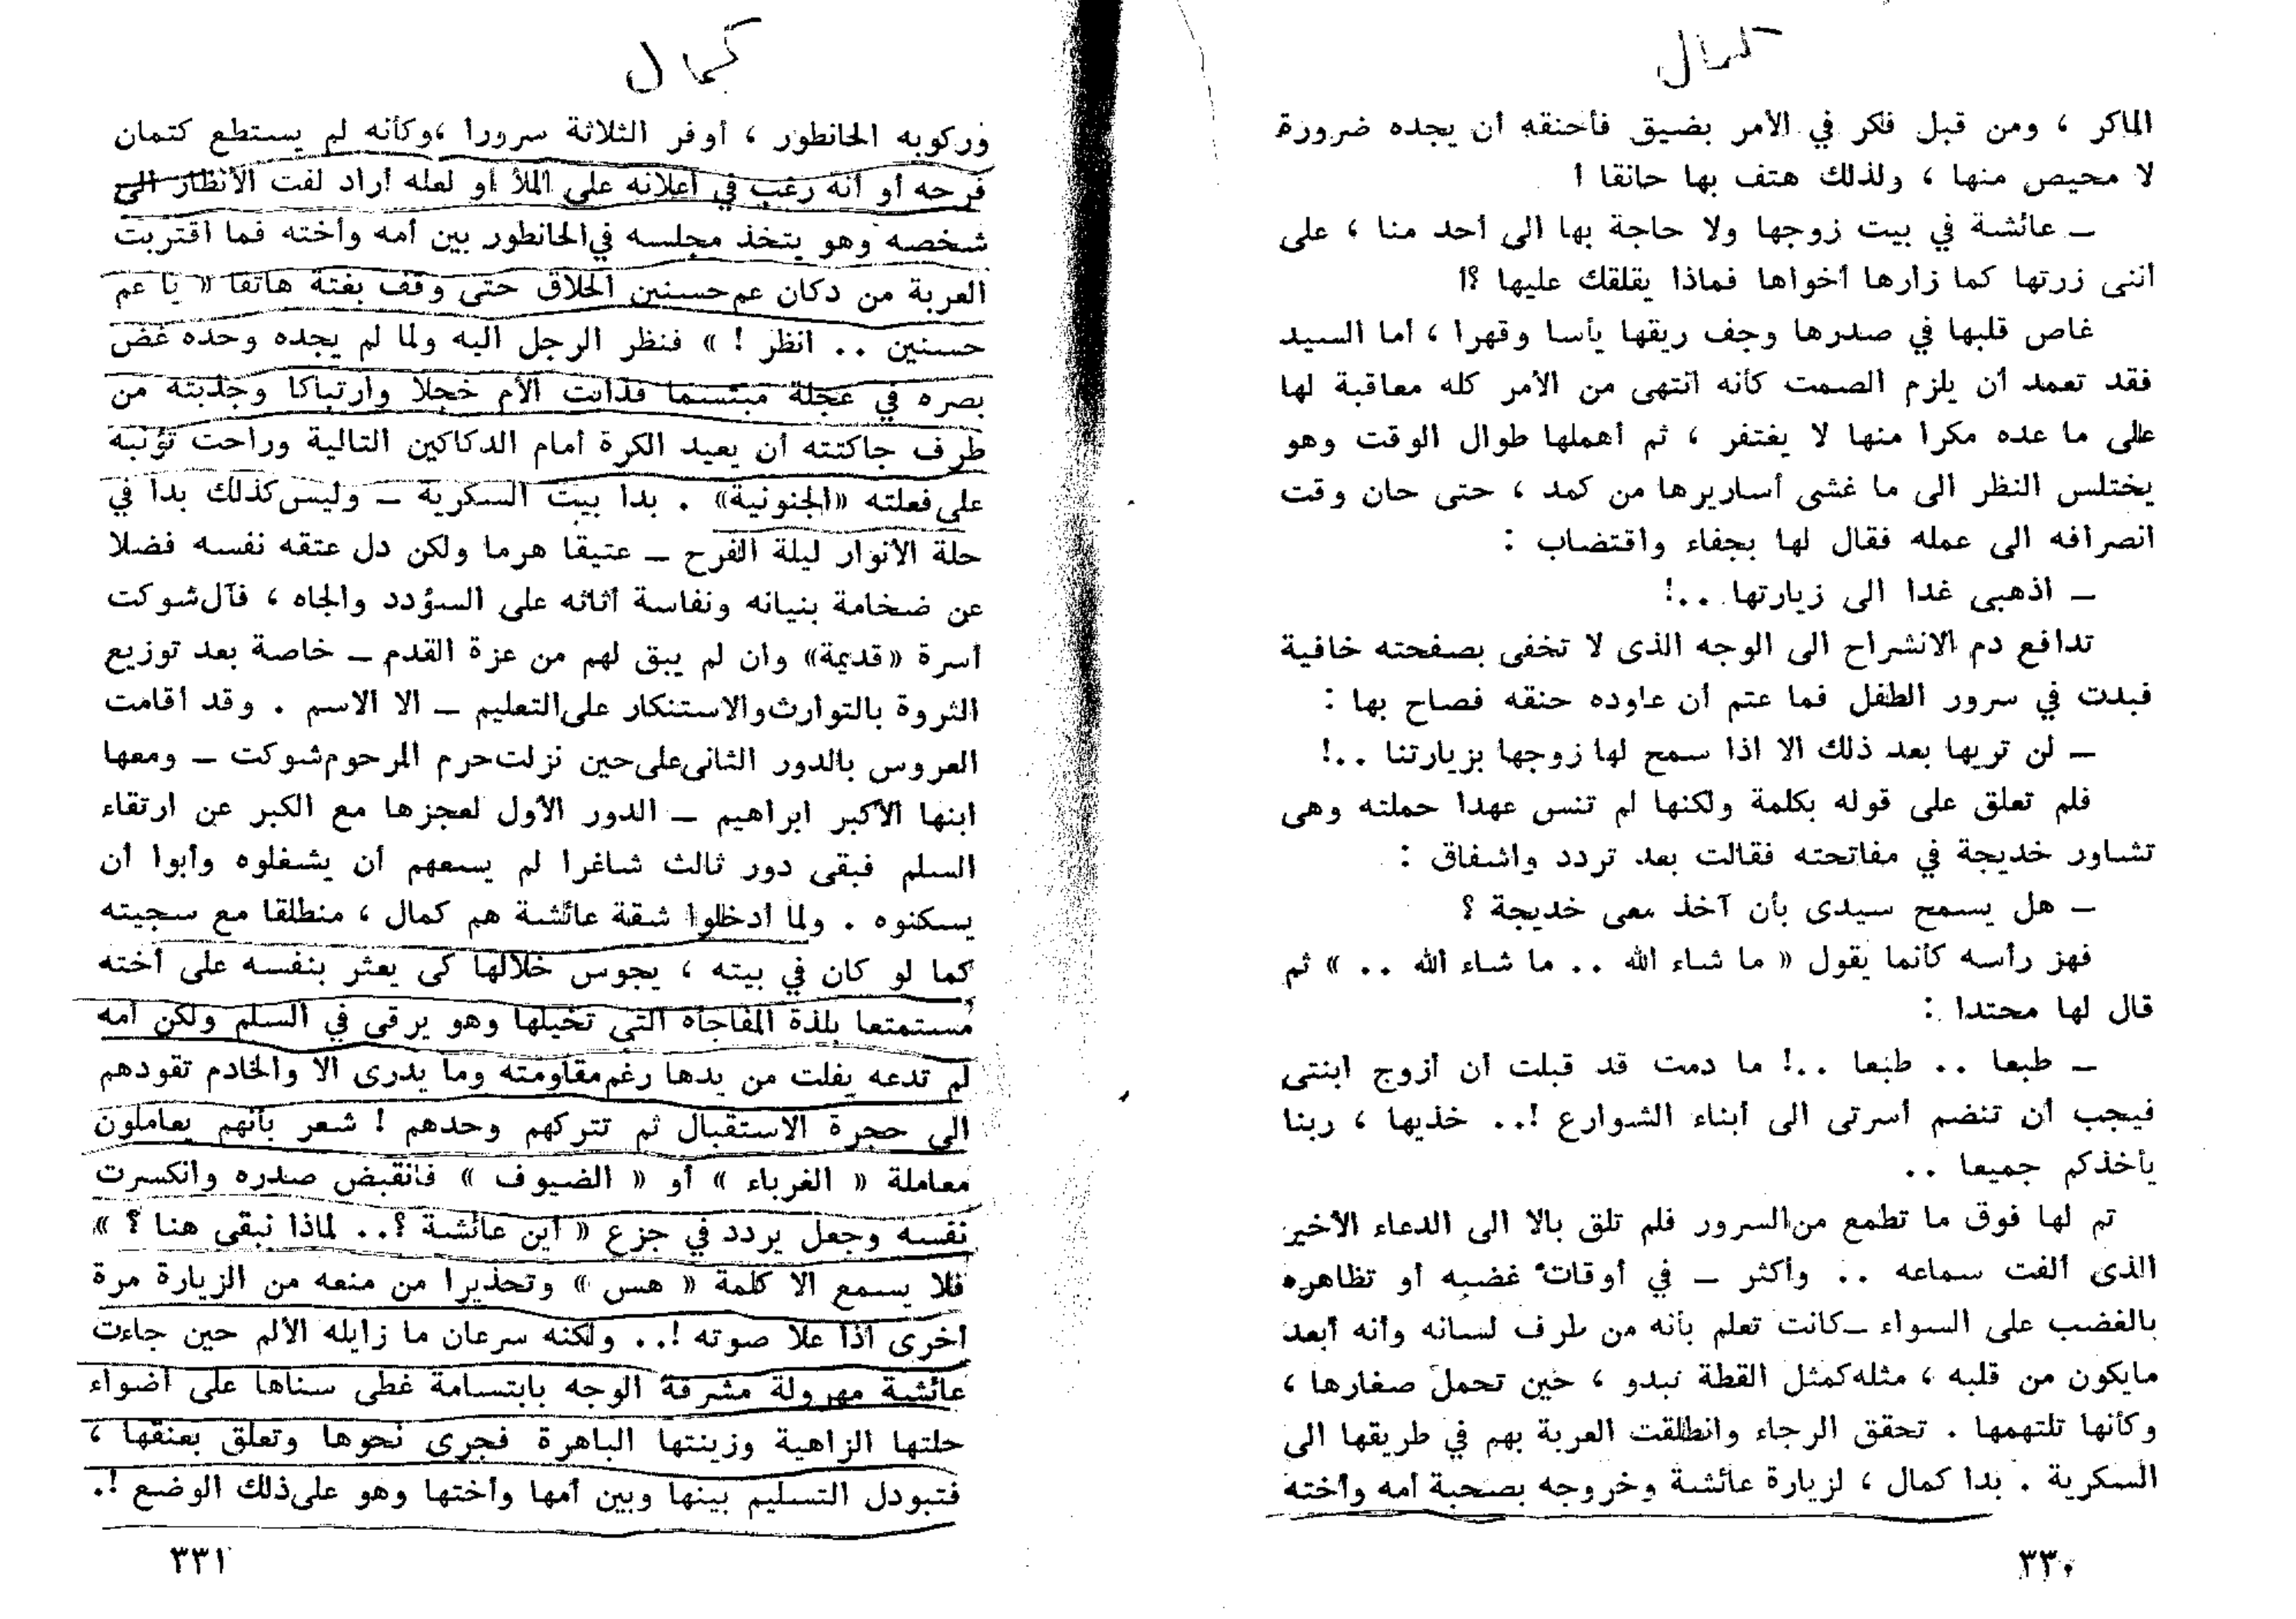 كمال
الماكر ، ومن قبل فكر في الأمر بضيق فأحنقه أن يجده ضرورة
لا محيص منها ، ولذلك هتف بها حانقا !
ــ عائشة في بيت زوجها ولا حاجة بها الى أحد منا ، على
أننى زرتها كما زارها أخواها فماذا يقلقك عليها ؟!
غاص قلبها في صدرها وجف ريقها يأسا وقهرا ، أما السيد
فقد تعمد أن يلزم الصمت كأنه انتهى من الأمر كله معاقبة لها
على ما عده مكرا منها لا يغتفر ، ثم أهملها طوال الوقت وهو
يختلس النظر الى ما غشى أساريرها من كمد ، حتى حان وقت
انصرافه الى عمله فقال لها بجفاء واقتضاب :
ــ اذهبى غدا الى زيارتها ..!
تدافع دم الانشراح الى الوجه الذى لا تخفى بصفحته خافية
فبدت في سرور الطفل فما عتم أن عاوده حنقه فصاح بها :
ــ لن تريها بعد ذلك الا اذا سمح لها زوجها بزيارتنا ..!
فلم تعلق على قوله بكلمة ولكنها لم تنس عهدا حملته وهى
تشاور خديجة في مفاتحته فقالت بعد تردد واشفاق :
ــ هل يسمح سيدى بأن آخذ معى خديجة ؟
فهز رأسه كأنما يقول « ما شاء الله .. ما شاء الله .. » ثم
قال لها محتدا :
ــ طبعا .. طبعا ..! ما دمت قد قبلت أن أزوج ابنتى
فيجب أن تنضم أسرتى الى أبناء الشوارع !.. خذيها ، ربنا
يأخذكم جميعا ..
تم لها فوق ما تطمع من السرور فلم تلق بالا الى الدعاء الأخير
الذى ألفت سماعه .. وأكثر ــ في أوقات غضبه أو تظاهره
بالغضب على السواء ــ كانت تعلم بأنه من طرف لسانه وأنه أبعد
مايكون من قلبه ، مثله كمثل القطة تبدو ، حين تحمل صغارها ،
وكأنها تلتهمها . تحقق الرجاء وانطلقت العربة بهم في طريقها الى
السكرية . بدا كمال ، لزيارة عائشة وخروجه بصحبة أمه وأخته
٣٣٠
كمال
وركوبه الحانطور ، أوفر الثلاثة سرورا ،وكأنه لم يستطع كتمان
فرحه أو أنه رغب في اعلانه على الملأ أو لعله أراد لفت الأنظار الى
شخصه وهو يتخذ مجلسه في الحانطور بين أمه وأخته فما اقتربت
العربة من دكان عم حسنين الحلاق حتى وقف بغتة هاتفا « يا عم
حسنين .. انظر ! » فنظر الرجل اليه ولما لم يجده وحده غض
بصره في عجلة مبتسما فذابت الأم خجلا وارتباكا وجذبته من
طرف جاكتته أن يعيد الكرة أمام الدكاكين التالية وراحت تؤنبه
على فعلته «الجنونية» . بدا بيت السكرية ــ وليس كذلك بدا في
حلة الأنوار ليلة الفرح ــ عتيقا هرما ولكن دل عتقه نفسه فضلا
عن ضخامة بنيانه ونفاسة أثاثه على السؤدد والجاه ، فآل شوكت
أسرة «قديمة» وان لم يبق لهم من عزة القدم ــ خاصة بعد توزيع
الثروة بالتوارث والاستنكار على التعليم ــ الا الاسم . وقد أقامت
العروس بالدور الثانى على حين نزلت حرم المرحوم شوكت ــ ومعها
ابنها الأكبر ابراهيم ــ الدور الأول لعجزها مع الكبر عن ارتقاء
السلم فبقى دور ثالث شاغرا لم يسعهم أن يشغلوه وأبوا أن
يسكنوه . ولما أدخلوا شقة عائشة هم كمال ، منطلقا مع سجيته
كما لو كان في بيته ، يجوس خلالها كى يعثر بنفسه على أخته
مستمتعا بلذة المفاجأة التي تخيلها وهو يرقى في السلم ولكن أمه
لم تدعه يفلت من يدها رغم مقاومته وما يدرى الا والخادم تقودهم
الى حجرة الاستقبال ثم تتركهم وحدهم ! شعر بأنهم يعاملون
معاملة « الغرباء » أو « الضيوف » فانقبض صدره وانكسرت
نفسه وجعل يردد في جزع « أين عائشة ؟.. لماذا نبقى هنا ؟ »
فلا يسمع الا كلمة « هس » وتحذيرا من منعه من الزيارة مرة
أخرى اذا علا صوته !.. ولكنه سرعان ما زايله الألم حين جاءت
عائشة مهرولة مشرقة الوجه بابتسامة غطى سناها على أضواء
حلتها الزاهية وزينتها الباهرة فجرى نحوها وتعلق بعنقها ،
فتبودل التسليم بينها وبين أمها وأختها وهو على ذلك الوضع !.
٣٣١